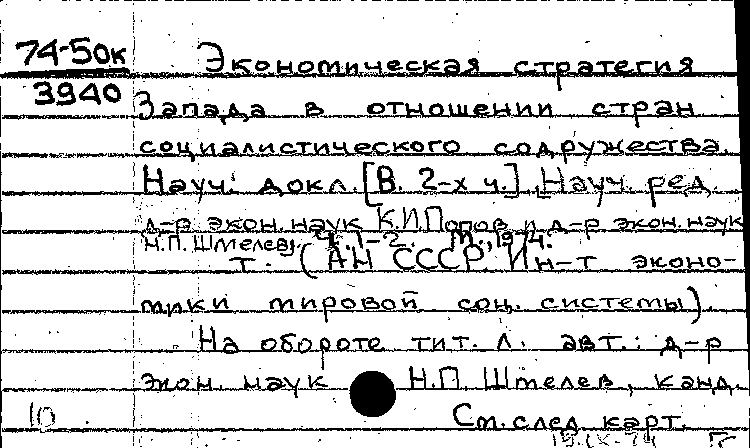 74-50к
3940
Экономическая стратегия
Запада в отношении стран
социалистического содружества.
Науч. докл. [В 2-х ч.]. [Науч. ред.
д-р экон. наук К.И. Попов и д-р экон. наук
Н.П. Шмелев]. Ч. 1-2. М., 1974.
т. (АН СССР. Ин-т эконо-
мики мировой соц. системы).
На обороте тит. л. авт.: д-р
экон. наук Н.П. Шмелев, канд.
10
См. след. карт.